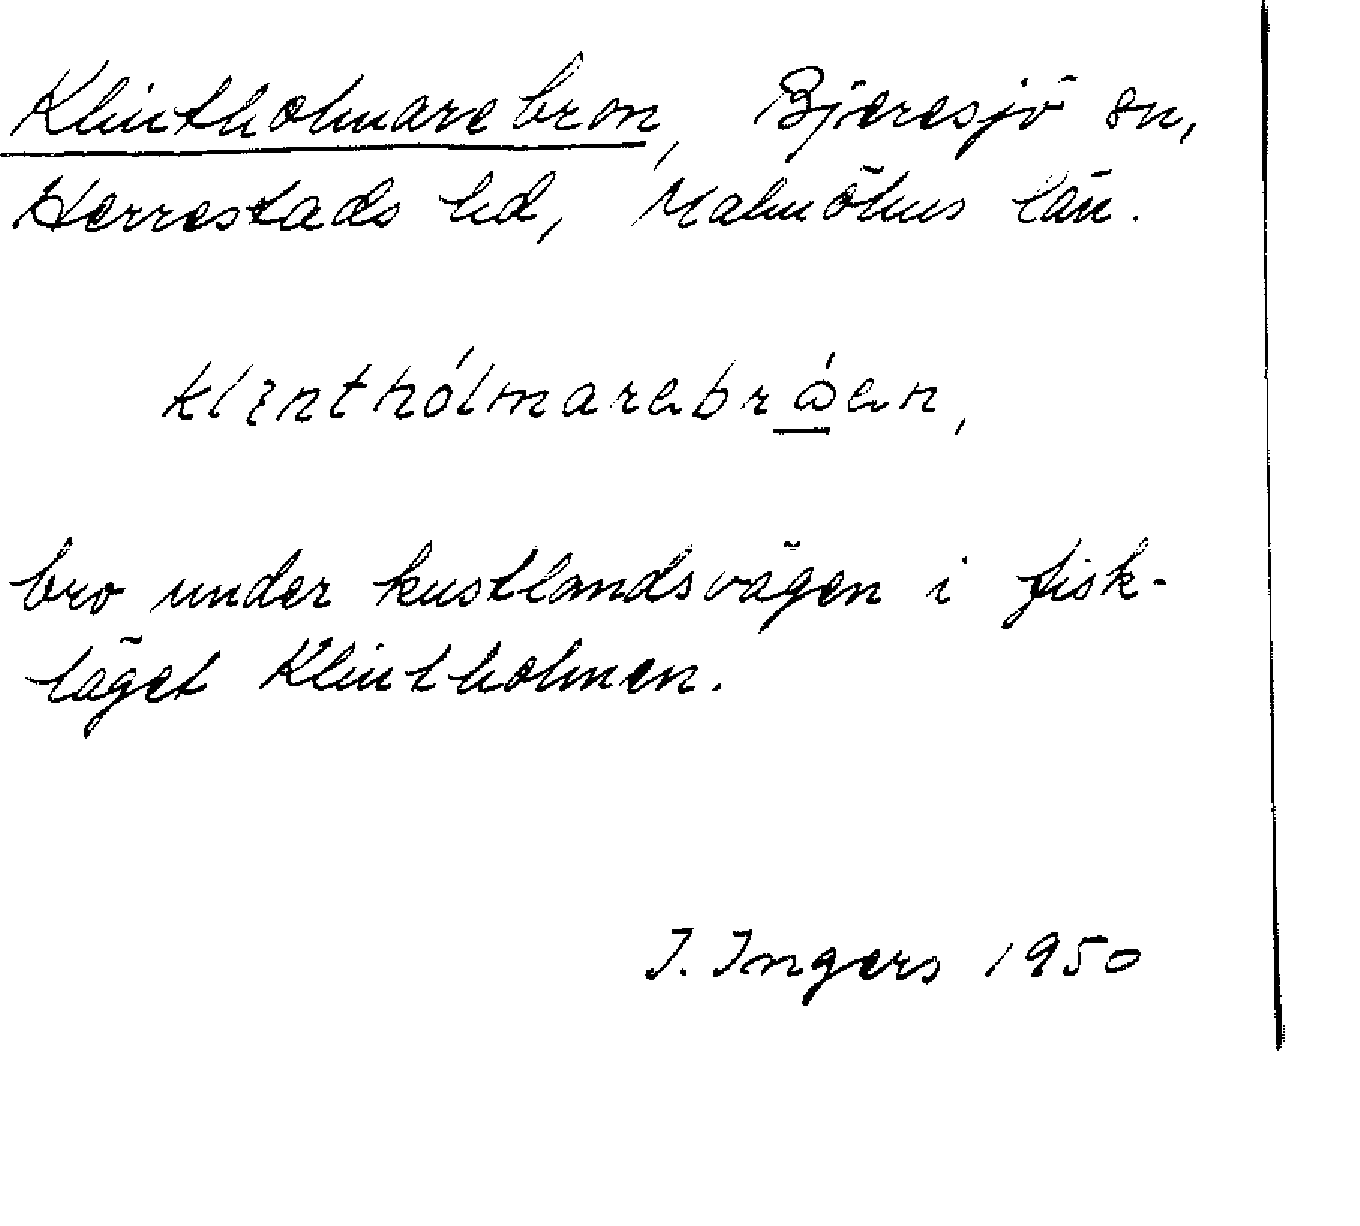 Klintholmarebron, Bjeresjö sn,
Herrestads hd, Malmöhus län.
klinthólmarebrǫ́en,
bro under kustlandsvägen i fisk-
läget Klintholmen.
I. Ingers 1950